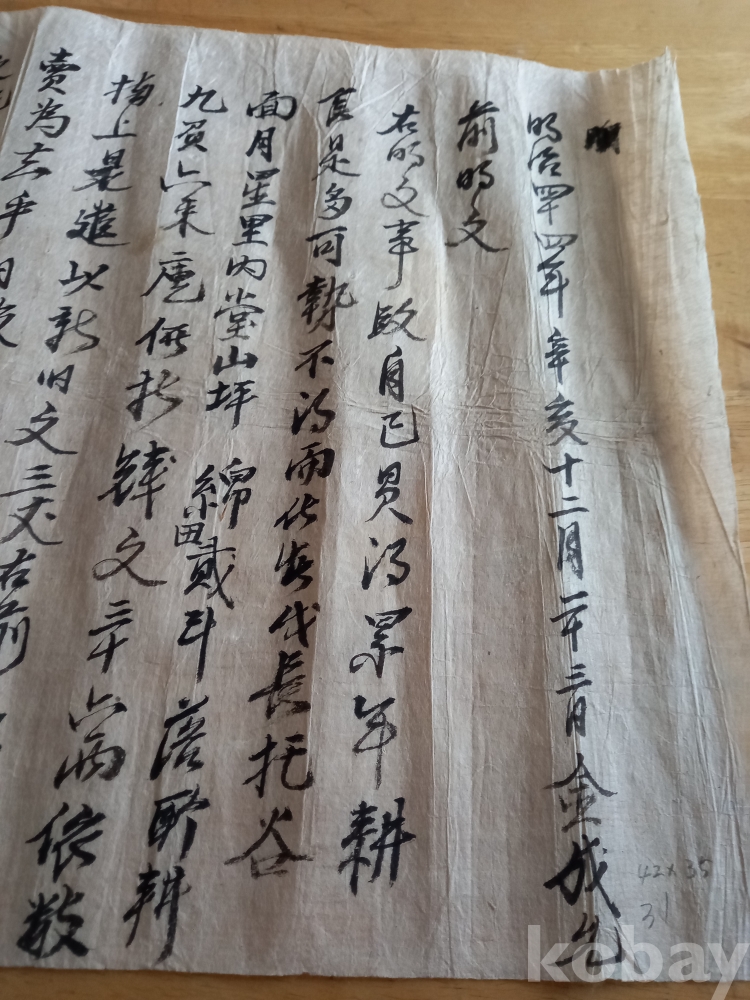 明治四十四年辛亥十二月二十三日金成
前明文
右明文事段自己買得累年耕
食是多可勢不得而伏在 長托谷
面月星里內堂山坪綿田貳斗落所耕
九負六束庫價折錢文三十六兩依數
捧上是遣以新旧文三丈右前
賣為去乎日後
42×35
31
kobay